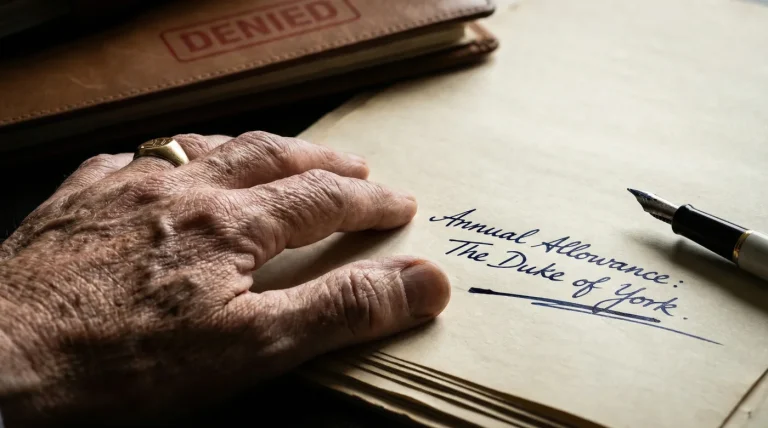 DENIED
Annual Allowance:
The Duke of York.